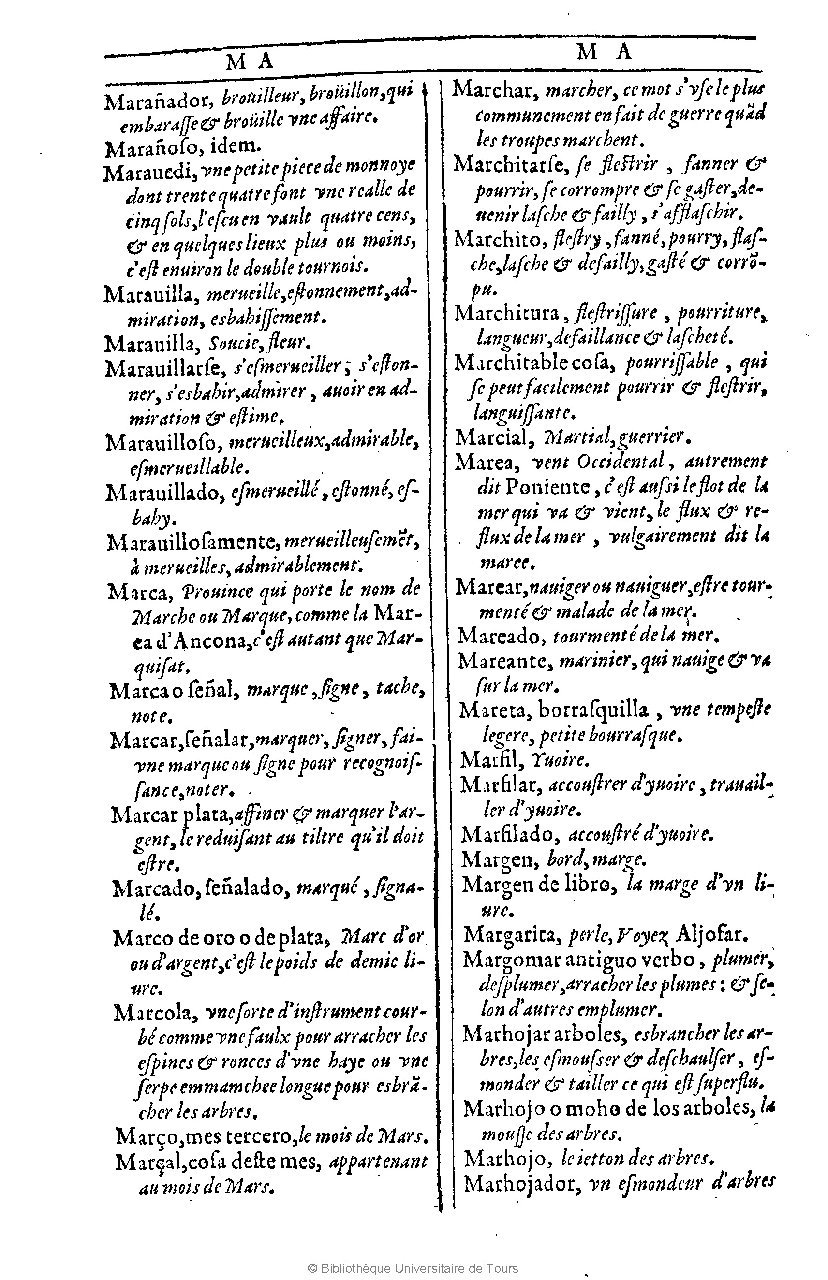 M A
Marañador, broüilleur, broüillon, qui
embarasse & broüille vne affaire.
Marañoso, idem.
Marauedi, vne petite piece de monnoye
dont trente quatre font vne realle de
cinq sols, l'escu en vault quatre cens,
& en quelques lieux plus ou moins,
c'est enuiron le double tournois.
Marauilla, merueille, estonnement, ad-
miration, esbahissement.
Marauilla, Soucie, fleur.
Marauillarse, s'esmerueiller; s'eston-
ner, s'esbahir, admirer, auoir en ad-
miration & estime.
Marauilloso, merueilleux, admirable,
esmerueillable.
Marauillado, esmerueillé, estonné, es-
bahy.
Marauillosamente, merueilleusemẽt,
à merueilles, admirablement.
Marca, Prouince qui porte le nom de
Marche ou Marque, comme la Mar-
ca d'Ancona, c'est autant que Mar-
quisat.
Marca o señal, marque, signe, tache,
note.
Marcar, señalar, marquer, signer, fai-
vne marque ou signe pour recognois-
sance, noter.
Marcar plata, affiner & marquer l'ar-
gent, le reduisant au tiltre qu'il doit
estre.
Marcado, señalado, marqué, signa-
lé.
Marco de oro o de plata, Marc d'or
ou d'argent, c'est le poids de demie li-
ure.
Marcola, vne sorte d'instrument cour-
bé comme vne faulx pour arracher les
espines & ronces d'vne haye ou vne
serpe emmamchee longue pour esbrã-
cher les arbres.
Março, mes tercero, le mois de Mars.
Marçal, cosa deste mes, appartenant
au mois de Mars.
M A
Marchar, marcher, ce mot s'vse le plus
communement en fait de guerre quãd
les troupes marchent.
Marchitarse, se flestrir, fanner &
pourrir, se corrompre & se gaster, de-
uenir lasche & failly, s'afflaschir.
Marchito, flestry, fanné, pourry, flas-
che, lasche & defailly, gasté & corrõ-
pu.
Marchitura, flestrissure, pourriture,
langueur, defaillance & lascheté.
Marchitable cosa, pourrissable, qui
se peut facilement pourrir & flestrir,
languissante.
Marcial, Martial, guerrier.
Marea, vent Occidental, autrement
dit Poniente, c'est aussi le flot de la
mer qui va & vient, le flux & re-
flux de la mer, vulgairement dit la
maree.
Marear, nauiger ou nauiguer, estre tour-
menté & malade de la mer.
Mareado, tourmenté de la mer.
Mareante, marinier, qui nauige & va
sur la mer.
Mareta, borrasquilla, vne tempeste
legere, petite bourrasque.
Marfil, Yuoire.
Marfilar, accoustrer d'yuoire, trauail-
ler d'yuoire.
Marfilado, accoustré d'yuoire.
Margen, bord, marge.
Margen de libro, la marge d'vn li-
ure.
Margarita, perle, Voyez Aljofar.
Margomar antiguo verbo, plumer,
desplumer, arracher les plumes: & se-
lon d'autres emplumer.
Marhojar arboles, esbrancher les ar-
bres, les esmousser & deschausser, es-
monder & tailler ce qui est superflu.
Marhojo o moho de los arboles, la
mousse des arbres.
Marhojo, le ietton des arbres.
Marhojador, vn esmondeur d'arbres
© Bibliothèque Universitaire de Tours